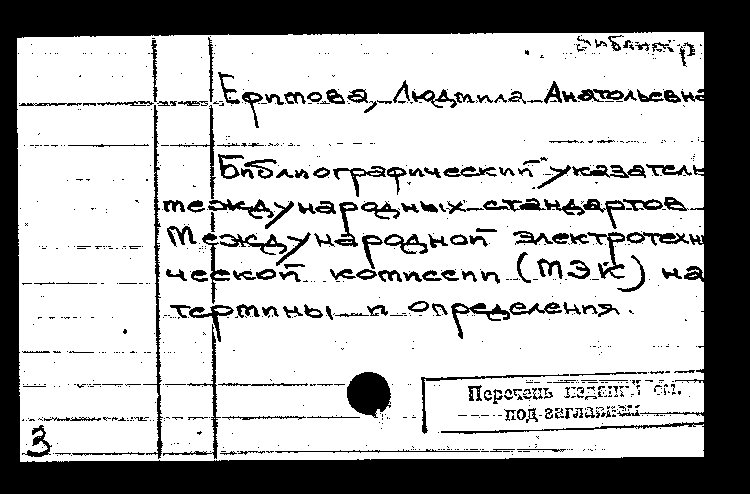 библиогр
Ефимова, Людмила Анатольевна
Библиографический указатель
международных стандартов
Международной электротехни
ческой комиссии (МЭК) на
термины и определения.
Перечень изданий см.
под заглавием
3